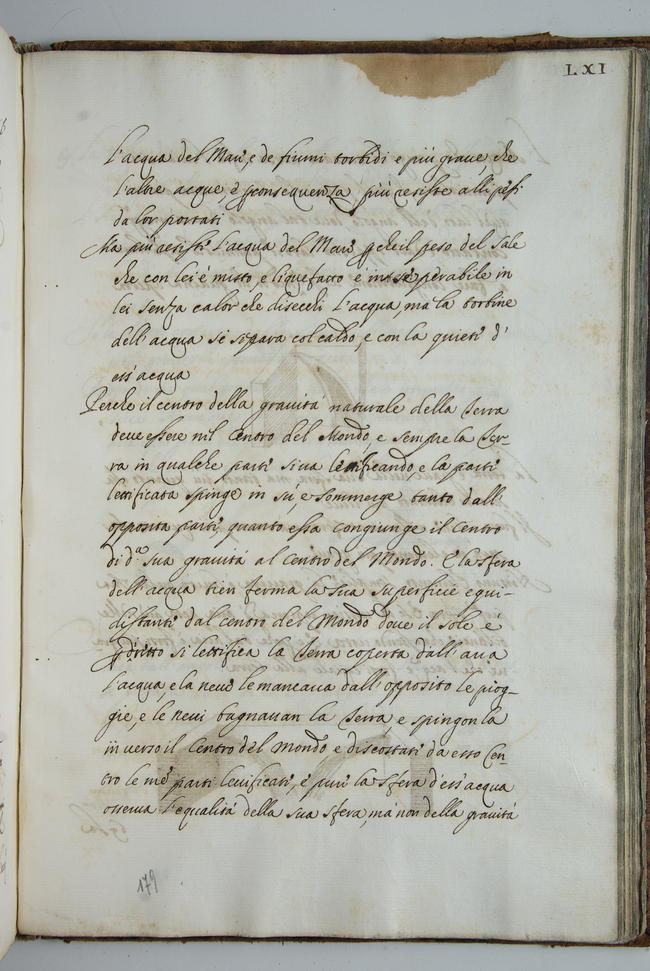 LXI
L'acqua del Mare, e de fiumi torbidi e più graue, che
l'altre acque, e consequenza più resiste alli pesi
da lor portati
Ma più resiste l'acqua del Mare ꝑche il peso del sale
che con lei è misto, e liquefatto è inseperabile in
lei senza calor che disecchi l'acqua, ma la torbine
dell'acqua se separa col caldo, e con la quiete d'
ess'acqua
Perche il centro della grauità naturale della Terra
deue essere nel Centro del Mondo, e sempre la Ter-
ra in qualche parte si ua leuificando, e la parte
leuificata spinge in sù, e sommerge tanto dall'
opposita parte, quanto essa congiunge il Centro
di d.ª sua grauità al Centro del Mondo. E la sfera
dell'acqua tien ferma la sua superficie equi-
distante dal centro del Mondo doue il sole è
si leuifica la Terra coperta dall'aria
l'acqua e la neue le mancaua dall'opposito le piog-
gie, e le neui bagnauan la Terra e spingon la
in uerso il Centro del Mondo e discostate da esso Cen-
tro le parti leuificate, e pure la sfera d'ess'acqua
osserua l'equalità della sua sfera, mà non della grauità
179